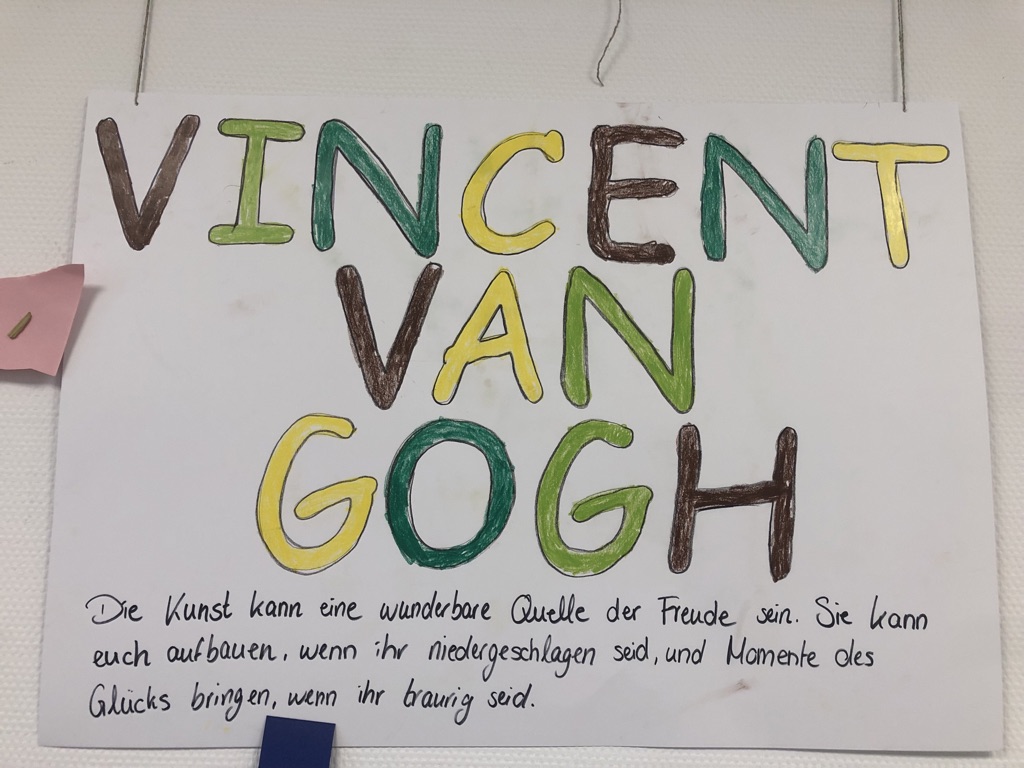 VINCENT
VAN
GOGH
Die Kunst kann eine wunderbare Quelle der Freude sein. Sie kann
euch aufbauen, wenn ihr niedergeschlagen seid, und Momente des
Glücks bringen, wenn ihr traurig seid.